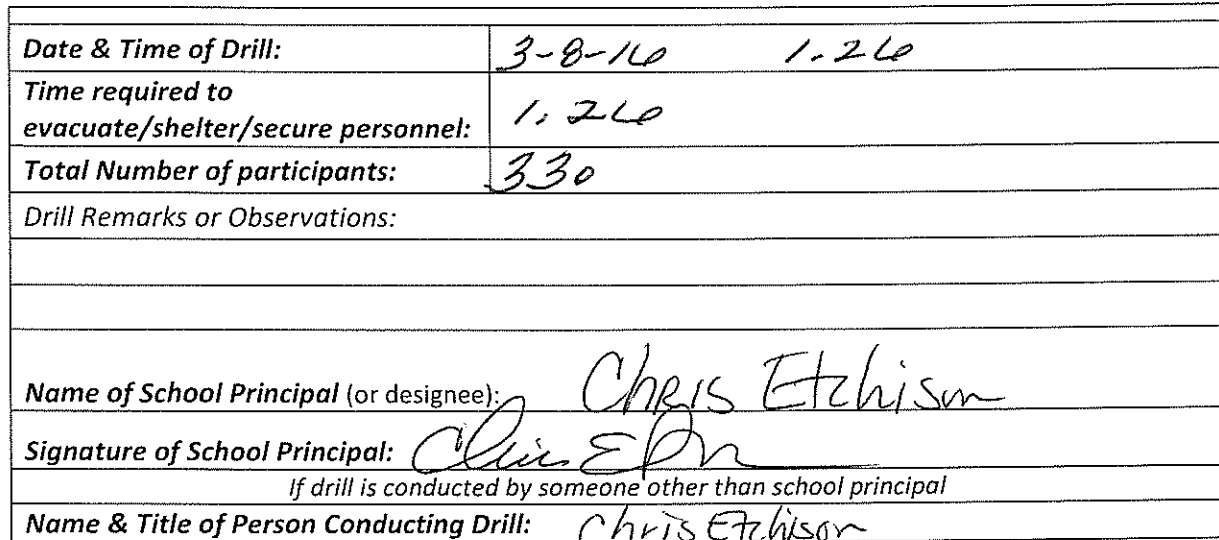 Date & Time of Drill: 3-8-16 1.26
Time required to
evacuate/shelter/secure personnel: 1.26
Total Number of participants: 330
Drill Remarks or Observations:
Name of School Principal (or designee): Chris Etchison
Signature of School Principal:
If drill is conducted by someone other than school principal
Name & Title of Person Conducting Drill: Chris Etchison